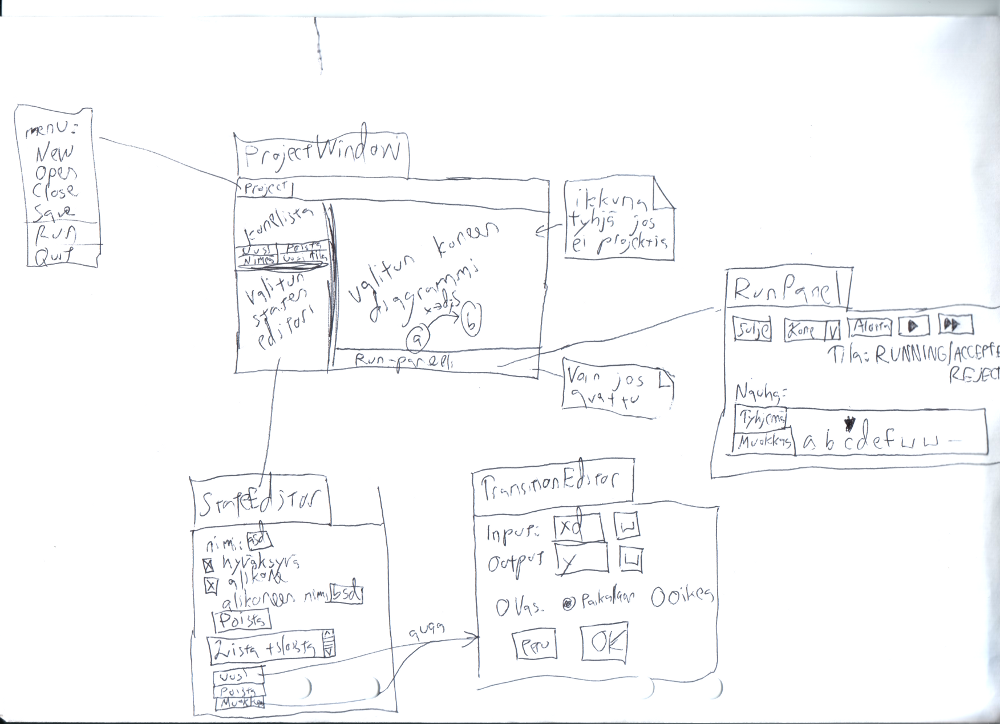 menu:
New
Open
Close
Save
Run
Quit
ProjectWindow
Project
konelista
Uusi
Poista
Nimeä
Uusi tila
valitun
staten
editori
valitun koneen
diagrammi
x→d,s
a
b
Run-paneeli
ikkuna
tyhjä jos
ei projektia
Vain jos
avattu
RunPanel
Sulje
Kone
V
Aloita
Tila: RUNNING/ACCEPTE
REJECT
Nauha:
Tyhjennä
Muokkaa
a b c d e f w w -
StateEditor
nimi: asd
x hyväksyvä
x alikone
alikoneen nimi bsd
Poista
Lista tiloista
uusi
Poista
Muokkaa
avaa
TransitionEditor
Input: xd
Output y
O Vas. Paikallaan O Oikea
Peru
OK